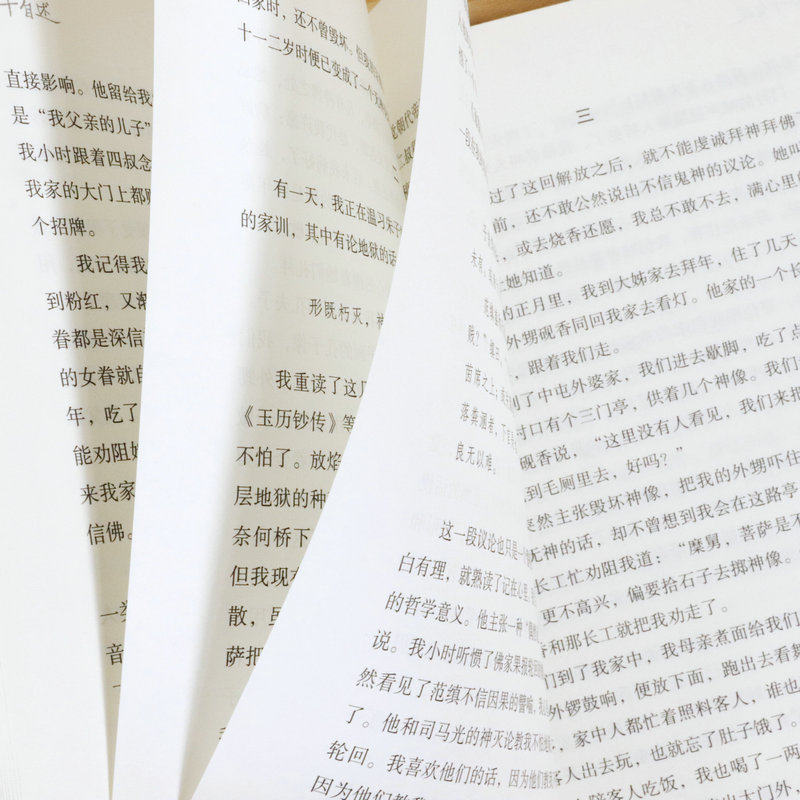 十自述
直接影响。他留给我
是“我父亲的儿子”
我小时跟着四叔念
我家的大门上都
个招牌。
我记得我
到粉红，又渐
眷都是深信
的女眷就自
年，吃了
能劝阻
来我家
信佛。
一类
音
家时，还不曾毁坏。但
十一二岁时便已变成了一个
有一天，我正在温习朱子
的家训，其中有论地狱的话
形既朽灭，神
我重读了这几
《玉历钞传》等
不怕了。放焰
层地狱的种
奈何桥下
但我现在
散，虽
萨把
一段
未有，
贱？”缜曰
茵席之上；
落粪溷者，下
良无以难。
这一段议论也只是一个
白有理，就熟读了记在心里
的哲学意义。他主张一种“偶然
说。我小时听惯了佛家果报轮回
然看见了范缜不信因果的譬喻，我心里
了。他和司马光的神灭论教我不怕地
轮回。我喜欢他们的话，因为他们教我
因为他们教我
三
过了这回解放之后，就不能虔诚拜神拜佛了
前，还不敢公然说出不信鬼神的议论。她叫
，或去烧香还愿，我总不敢不去，满心里的
让她知道。
的正月里，我到大姊家去拜年，住了几天
外甥砚香同回我家去看灯。他家的一个长
，跟着我们走。
到了中屯外婆家，我们进去歇脚，吃了点
村口有个三门亭，供着几个神像。我们
砚香说，“这里没有人看见，我们来把
到毛厕里去，好吗？”
突然主张毁坏神像，把我的外甥吓住
无神的话，却不曾想到我会在这路亭
长工忙劝阻我道：“糜舅，菩萨是不
更不高兴，偏要拾石子去掷神像。
香和那长工就把我劝走了。
们到了我家中，我母亲煮面给我们
外锣鼓响，便放下面，跑出去看舞
，家中人都忙着照料客人，谁也
客人出去玩，也就忘了肚子饿了。
陪客人吃饭，我也喝了一两
出大门外，